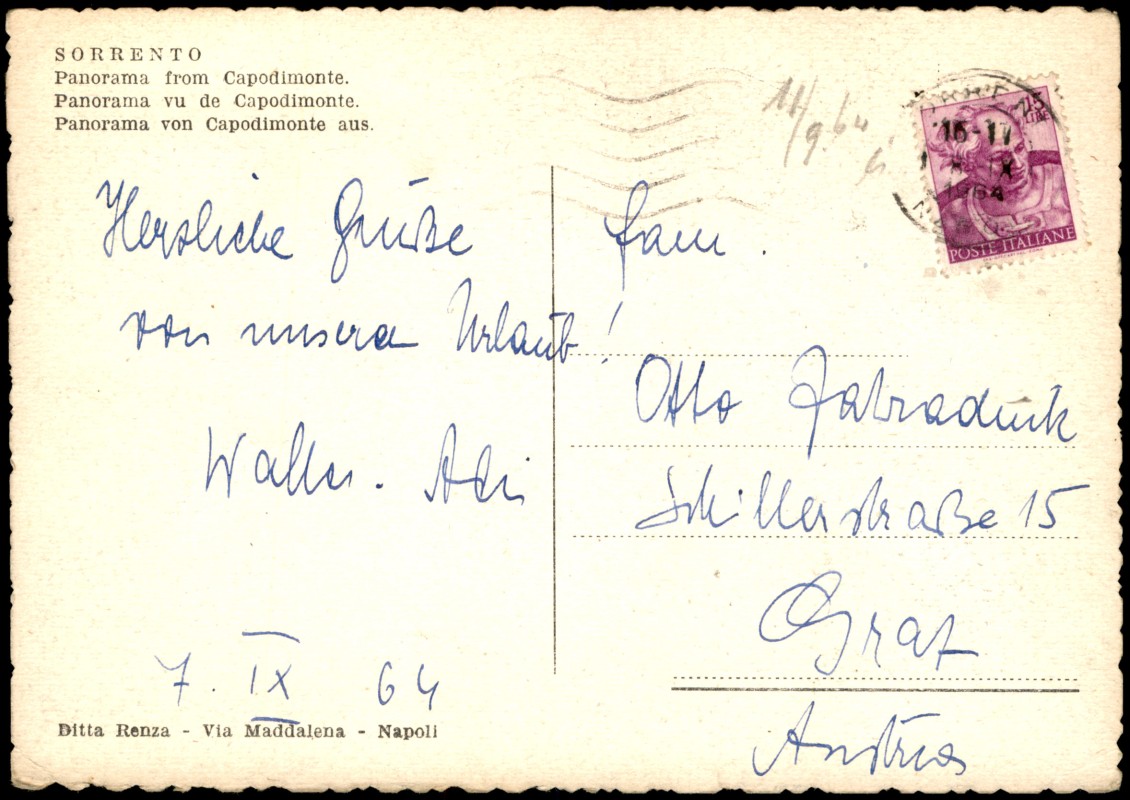 SORRENTO
Panorama from Capodimonte.
Panorama vu de Capodimonte.
Panorama von Capodimonte aus.
Herzliche Grüße
von unserem Urlaub!
Walter. Adi
7. IX 64
Ditta Renza - Via Maddalena - Napoli
11/9.64
15
LIRE
16-17
1964
POSTE ITALIANE
Fam.
Otto Zahradnik
Schillerstraße 15
Graz
Austria